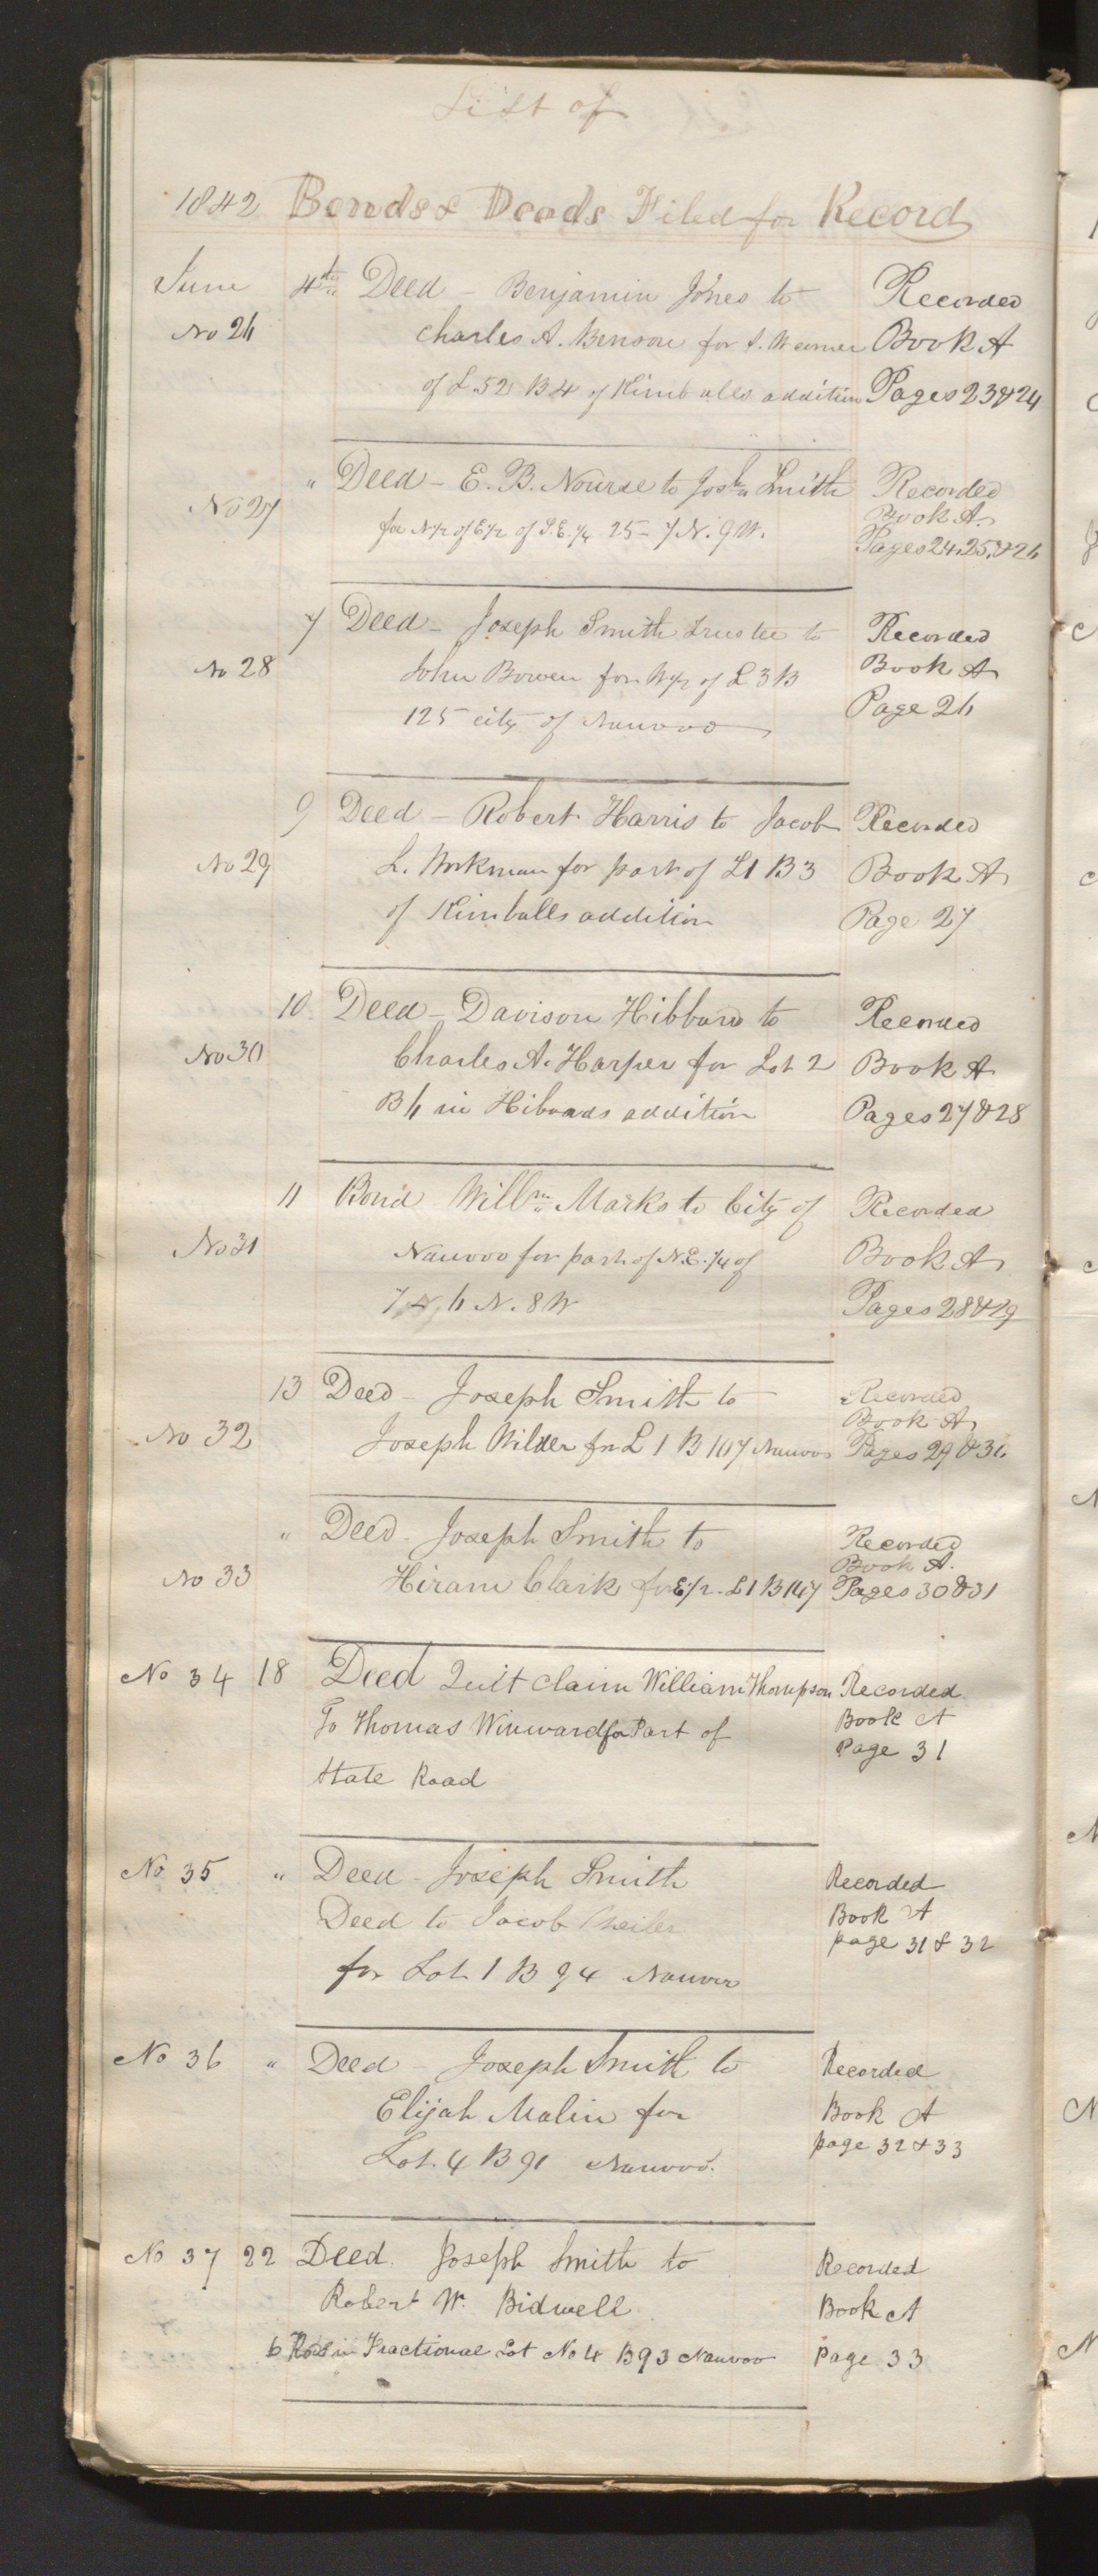 List of
1842 Bonds & Deeds Filed for Record
June 4th Deed - Benjamin Jones to Recorded
No 26 Charles A. Benson for S. W corner Book A
of L 52 B 4 of Kimballs addition Pages 23 & 24
" Deed - E. B. Nourse to Josh Smith Recorded
No 27 for N 1/2 of E 1/2 of S. E. 1/4 25 - 7 N. 9 W. Book A.
Pages 24, 25, & 26
7 Deed - Joseph Smith Trustee to Recorded
No 28 John Bowen for W 1/2 of L 3 B Book A
125 city of Nauvoo Page 26
9 Deed - Robert Harris to Jacob Recorded
No 29 L. Workman for part of L 1 B 3 Book A
of Kimballs addition Page 27
10 Deed - Davison Hibbard to Recorded
No 30 Charles A. Harper for Lot 2 Book A
B 6 in Hibbards addition Pages 27 & 28
11 Bond Willm Marks to City of Recorded
No 31 Nauvoo for part of N. E. 1/4 of Book A
7 6 N. 8 W Pages 28 & 29
13 Deed - Joseph Smith to Recorded
Book A
No 32 Joseph Wilder for L 1 B 107 Nauvoo Pages 29 & 30
" Deed - Joseph Smith to Recorded
Book A.
No 33 Hiram Clark for E 1/2 - L 1 B 107 Pages 30 & 31
No 34 18 Deed Quit Claim William Thompson Recorded
To Thomas Winward for Part of Book A
State Road Page 31
No 35 " Deed - Joseph Smith Recorded
Deed to Jacob Book A
page 31 & 32
for Lot 1 B 94 Nauvoo
No 36 " Deed - Joseph Smith to Recorded
Elijah Malin for Book A
Lot 4 B 91 Nauvoo. page 32 & 33
No 37 22 Deed. Joseph Smith to Recorded
Robert W. Bidwell Book A
6 Rods in Fractional Lot No 4 B 93 Nauvoo Page 33